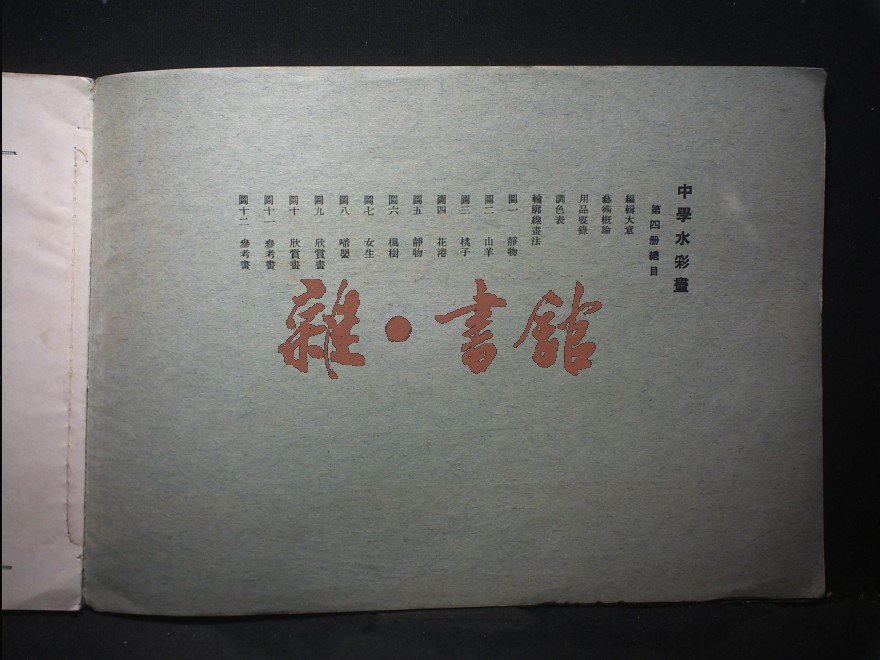 中學水彩畫
第四册總目
編輯大意
藝術概論
用品要錄
調色表
輪廓線畫法
圖一 靜物
圖二 山羊
圖三 桃子
圖四 花港
圖五 靜物
圖六 楓樹
圖七 女生
圖八 嘈嬰
圖九 欣賞畫
圖十 欣賞畫
圖十一 參考畫
圖十二 參考畫
雜·書館